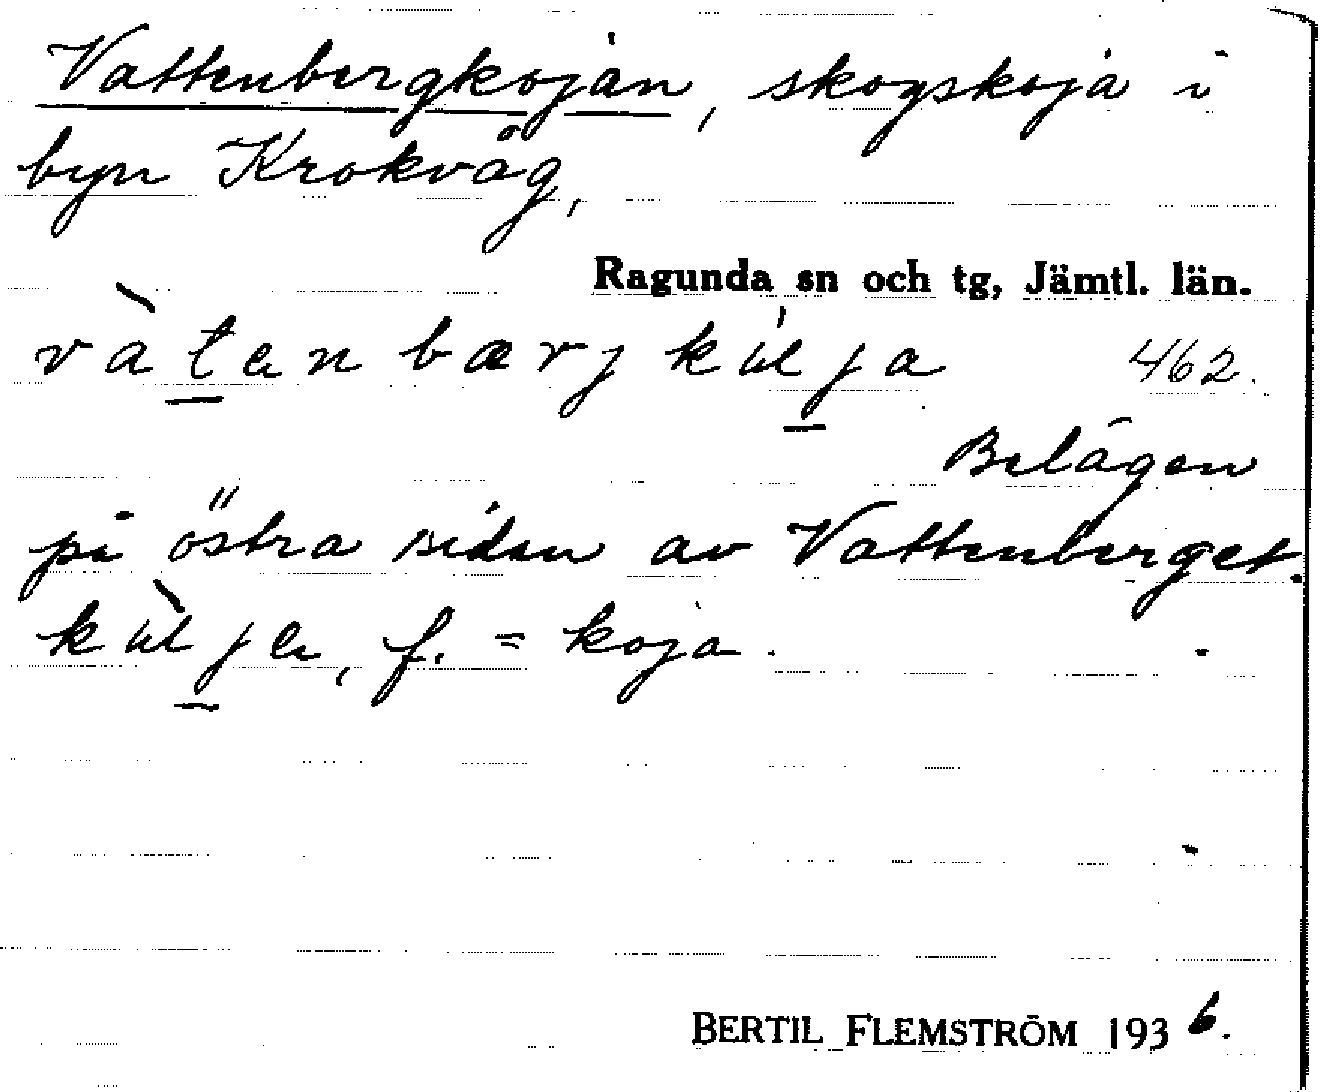 Vattenbergkojan, skogskoja i
byn Krokvåg,
Ragunda sn och tg, Jämtl. län.
462.
Belägen
på östra sidan av Vattenberget.
f. = koja.
BERTIL FLEMSTRÖM 1936.